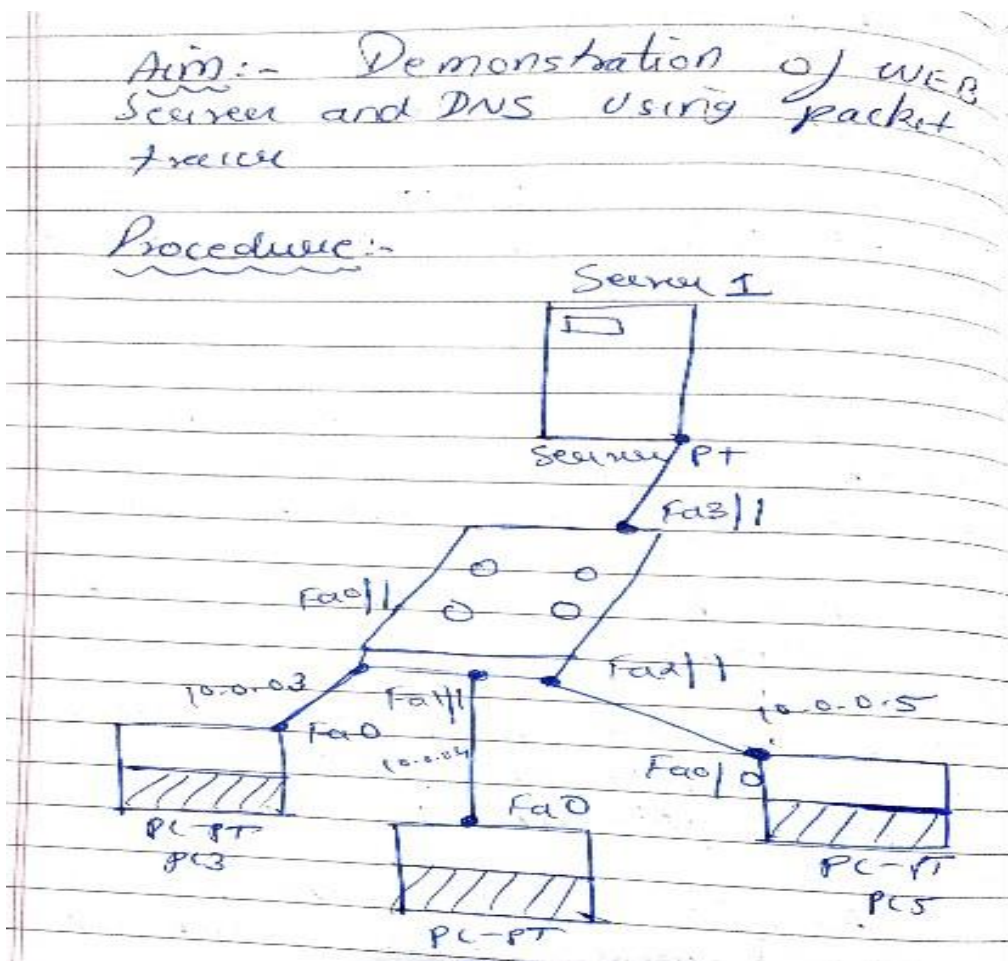 Aim:- Demonstration of WEB
Server and DNS using packet
tracer
Procedure:-
Server 1
Server PT
Fa3/1
Fa0/1
Fa2/1
10.0.0.3
Fa1/1
10.0.0.5
Fa0
10.0.0.4
Fa0/0
Fa0
PC-PT
PC3
PC-PT
PC5
PC-PT